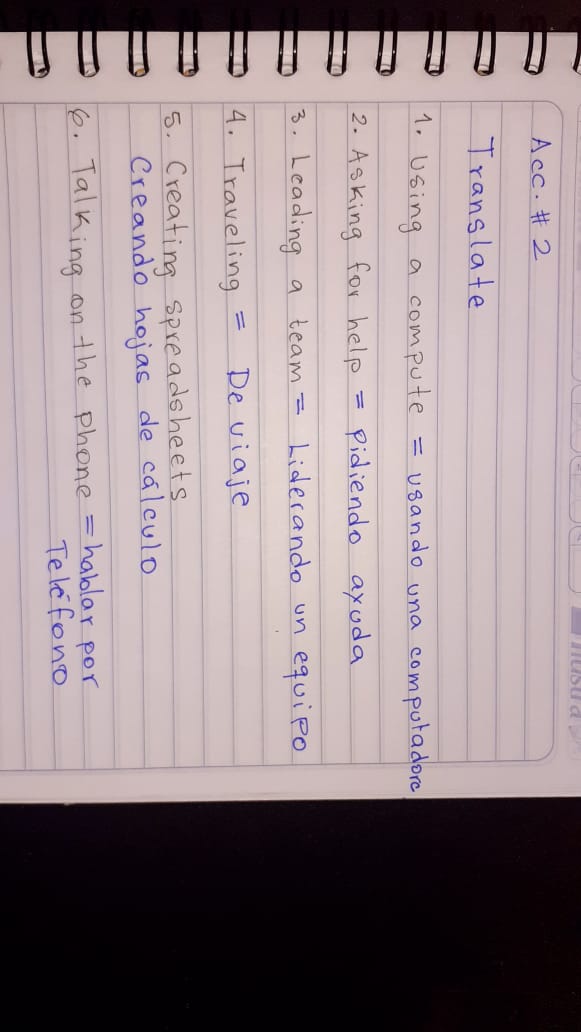 Acc. # 2
Translate
1. Using a compute = usando una computadora
2. Asking for help = pidiendo ayuda
3. Leading a team = Liderando un equipo
4. Traveling = De viaje
5. Creating spreadsheets
Creando hojas de cálculo
6. Talking on the phone = hablar por
Teléfono